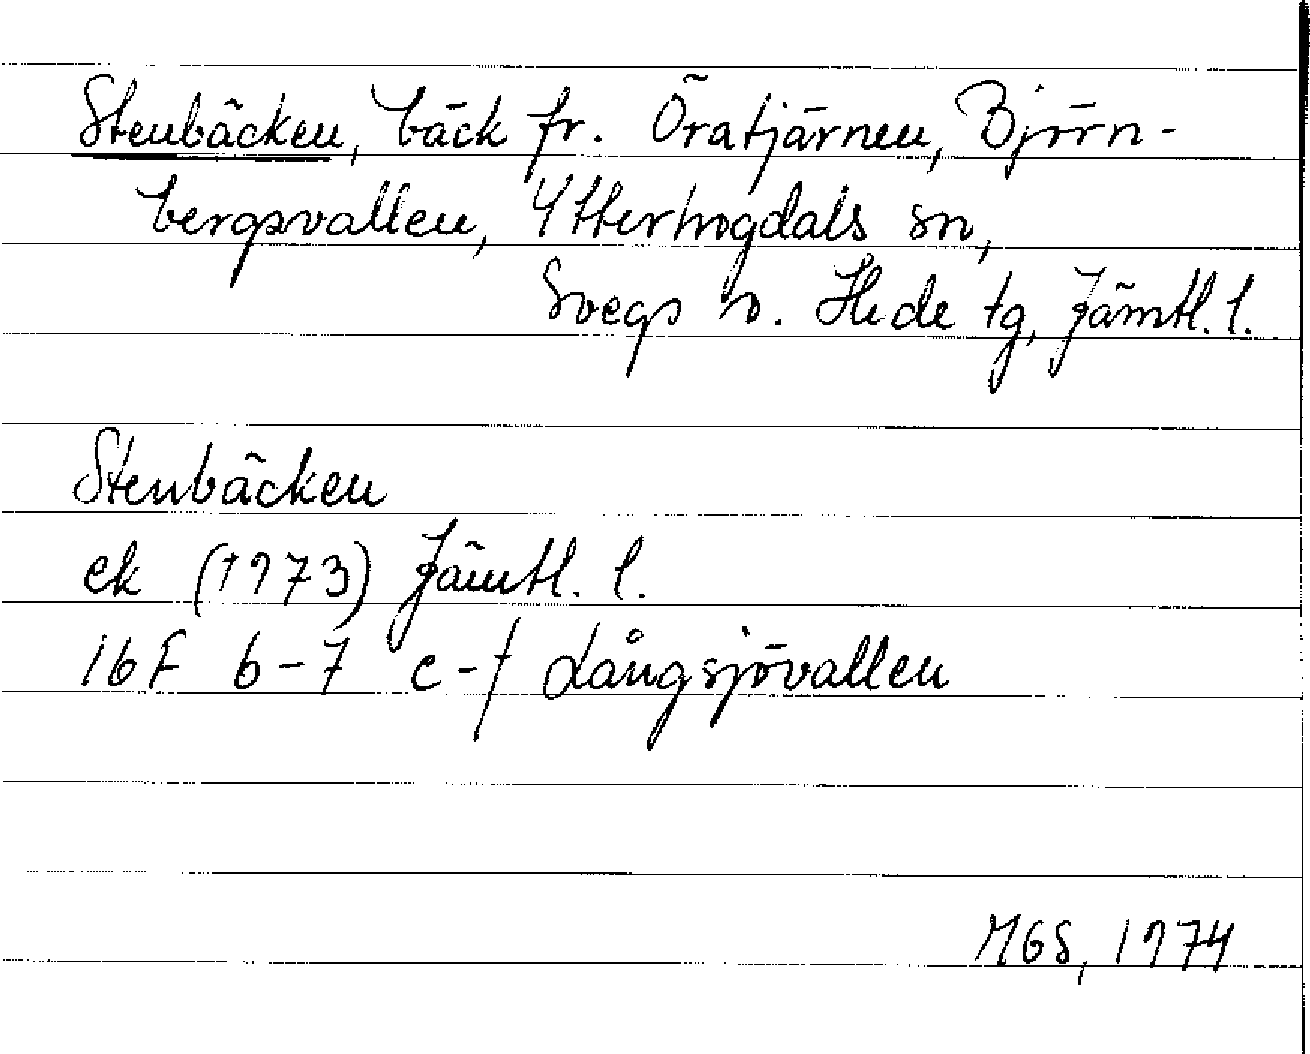 Stenbäcken, bäck fr. Öratjärnen, Björn-
bergsvallen, Ytterhogdals sn,
Svegs o. Hede tg, Jämtl. l.
Stenbäcken
ek (1973) Jämtl. l.
16F 6-7 e-f Långsjövallen
MGS, 1974